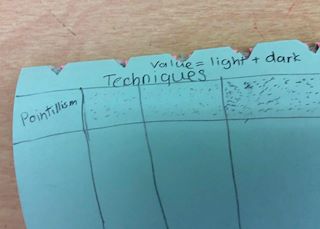 value = light + dark
Techniques
Pointillism